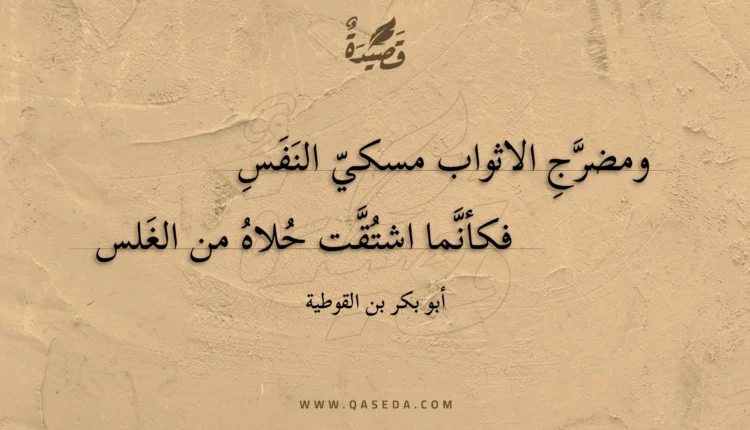 قَصِيدَةٌ
ومضرَّجِ الاثواب مسكيّ النَفَسِ
فكأنَّما اشتُقَّت حُلاهُ من الغَلس
أبو بكر بن القوطية
WWW.QASEDA.COM